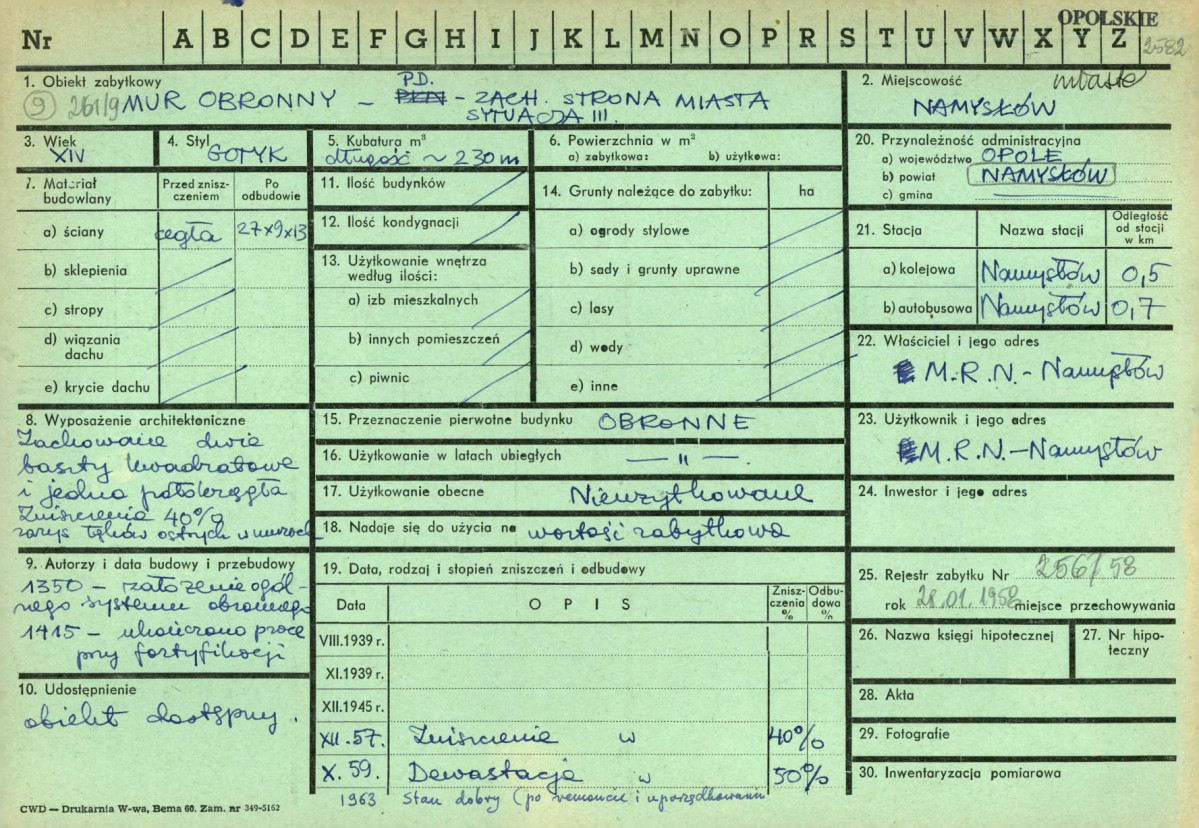 OPOLSKIE
Nr A B C D E F G H I J K L M N O P R S T U V W X Y Z 2582
1. Obiekt zabytkowy
9 261/9 MUR OBRONNY – PŁN PD. - ZACH. STRONA MIASTA
SYTUACJA III.
2. Miejscowość miasto
NAMYSŁÓW
3. Wiek
XIV
4. Styl
GOTYK
5. Kubatura m³
długość ~ 230 m
6. Powierzchnia w m²
a) zabytkowa: b) użytkowa:
20. Przynależność administracyjna
a) województwo OPOLE
b) powiat NAMYSŁÓW
c) gmina
7. Materiał budowlany
Przed zniszczeniem
Po odbudowie
a) ściany cegła 27×9×13
b) sklepienia
c) stropy
d) wiązania dachu
e) krycie dachu
11. Ilość budynków
12. Ilość kondygnacji
13. Użytkowanie wnętrza
według ilości:
a) izb mieszkalnych
b) innych pomieszczeń
c) piwnic
14. Grunty należące do zabytku: ha
a) ogrody stylowe
b) sady i grunty uprawne
c) lasy
d) wody
e) inne
21. Stacja Nazwa stacji Odległość od stacji w km
a) kolejowa Namysłów 0,5
b) autobusowa Namysłów 0,7
22. Właściciel i jego adres
M.R.N. - Namysłów
8. Wyposażenie architektoniczne
Zachowane dwie
baszty kwadratowe
i jedna półokrągła
Zniszczenia 40%
zarys łęków ostrych w murach
15. Przeznaczenie pierwotne budynku OBRONNE
16. Użytkowanie w latach ubiegłych — " —
17. Użytkowanie obecne Nieużytkowane
18. Nadaje się do użycia na wartość zabytkowa
23. Użytkownik i jego adres
M.R.N. - Namysłów
24. Inwestor i jego adres
9. Autorzy i data budowy i przebudowy
1350 – założenie ogól-
nego systemu obronnego
1415 – ukończono prace
przy fortyfikacji
10. Udostępnienie
obiekt dostępny.
19. Data, rodzaj i stopień zniszczeń i odbudowy
Data O P I S Zniszczenia % Odbudowa %
VIII.1939 r.
XI.1939 r.
XII.1945 r.
XII.57. Zniszczenia w 40%
X. 59. Dewastacja w 50%
1963 Stan dobry (po remoncie i uporządkowaniu
25. Rejestr zabytku Nr 256/58
rok 28.01.1958 miejsce przechowywania
26. Nazwa księgi hipotecznej
27. Nr hipoteczny
28. Akta
29. Fotografie
30. Inwentaryzacja pomiarowa
CWD — Drukarnia W-wa, Bema 60. Zam. nr 349-5162